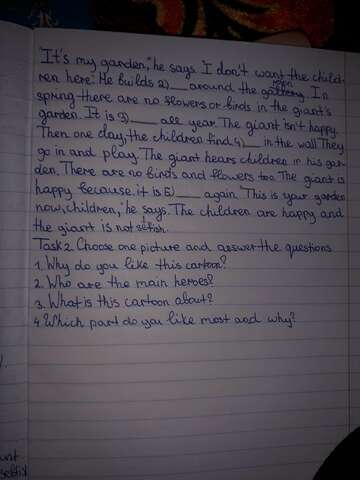 "It's my garden," he says. "I don't want the child-
ren here." He builds 2)___ around the garden. In
spring there are no flowers or birds in the giant's
garden. It is 3)___ all year. The giant isn't happy.
Then one day, the children find 4)___ in the wall. They
go in and play. The giant hears children in his gar-
den. There are no birds and flowers too. The giant is
happy because it is 5)___ again. "This is your garden
now, children," he says. The children are happy and
the giant is not selfish.
Task 2. Choose one picture and answer the questions
1. Why do you like this cartoon?
2. Who are the main heroes?
3. What is this cartoon about?
4. Which part do you like most and why?